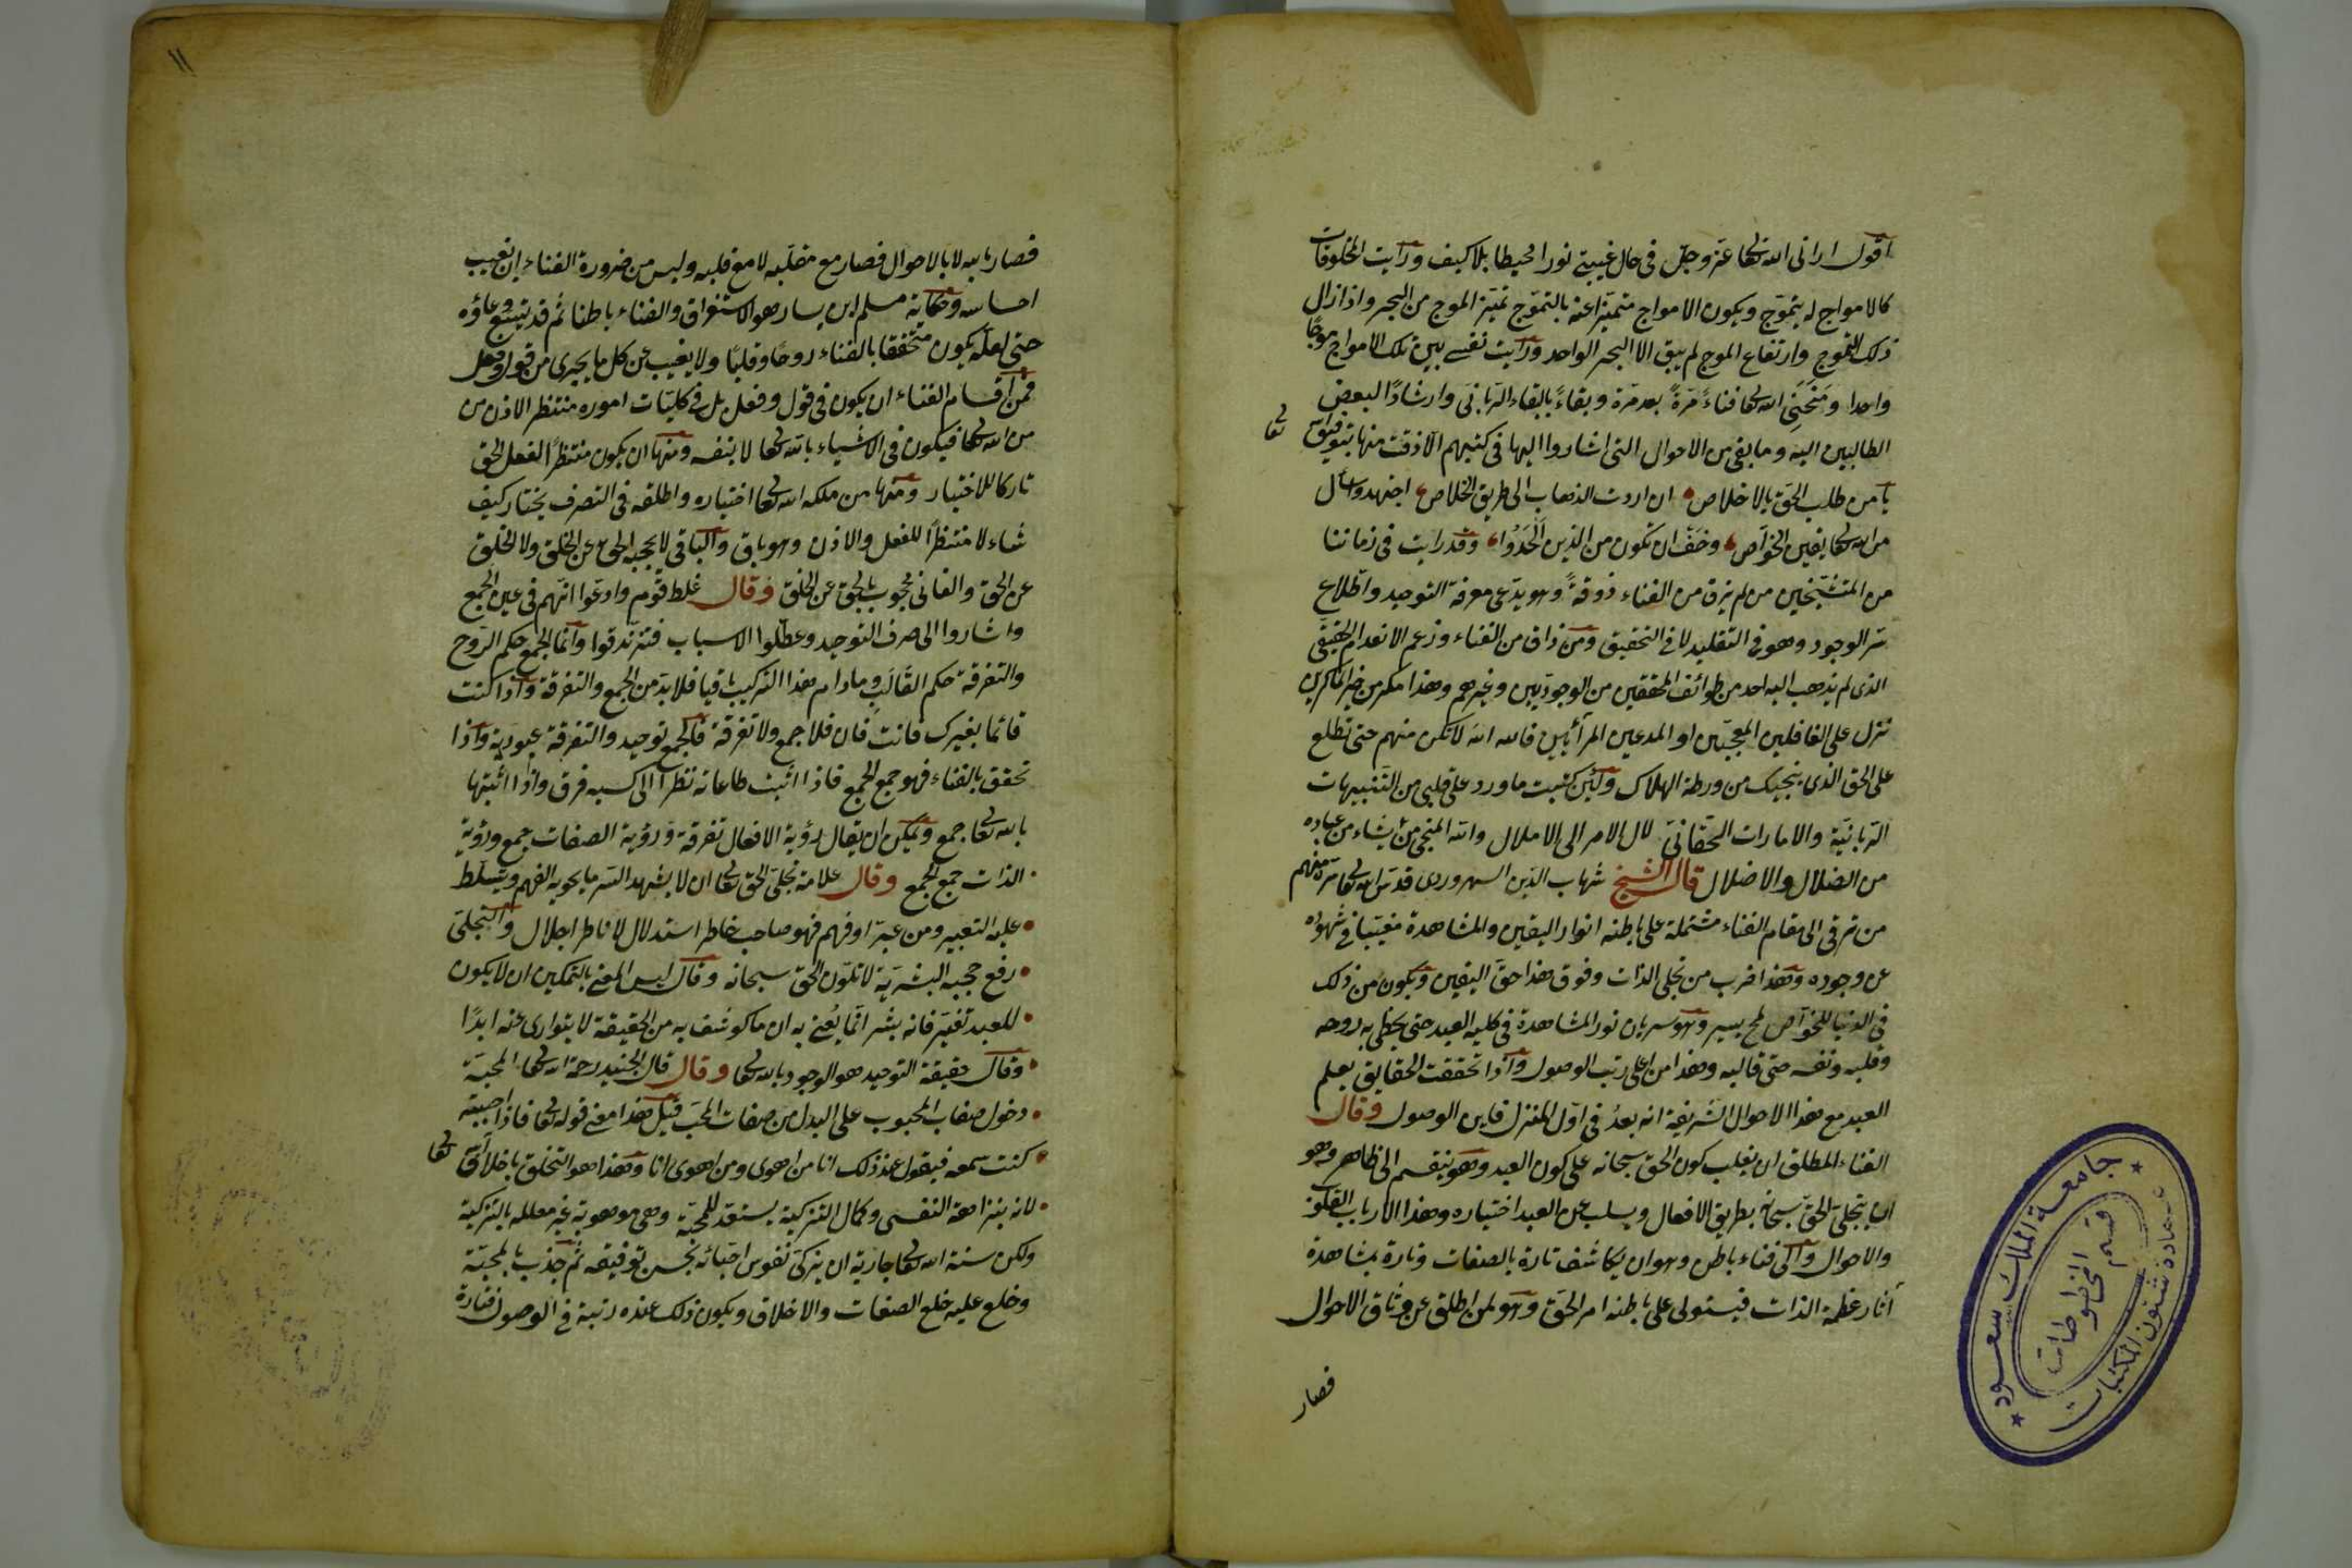 اقول ارانى الله تعا عز وجل فى حال غيبتى نورا محيطا بلا كيف ورأيت المخلوقات
كالامواج له يتموج ويكون الامواج متميزا عنه بالتموج تميز الموج من البحر واذا زال
ذلك التموج وارتفاع الموج لم يبق الا البحر الواحد ورأيت نفسى بين تلك الامواج موجًا
واحدا ومنحنى الله تعا فناءً مرةً بعد مرة وبقاءً بالبقاء الربانى وارشادًا لبعض
الطالبين اليه وما بقى من الاحوال التى اشاروا اليها فى كتبهم الا ذقت منها بتوفيق
تعا
يا من طلب الحق بالاخلاص ان اردت الذهاب الى طريق الخلاص اجتهد واسأل
من الله تعا يقين الخواص وخف ان تكون من الذين الحدوا وقد رايت فى زماننا
من المتشيخين من لم يرزق من الفناء ذوقةً وهو يدعى معرفة التوحيد واطلاع
سر الوجود وهو فى التقليد لا فى التحقيق ومن ذاق من الفناء وزعم الانعدام الحقيقى
الذى لم يذهب اليه احد من طوائف المحققين من الوجوديين وغيرهم وهذا مكر من خير الماكرين
تنزل على الغافلين المعجبين او المدعين المرائين فالله الله لا تكن منهم حتى تطلع
على الحق الذى ينجيك من ورطة الهلاك ولئن كتبت ما ورد على قلبى من التنبيهات
الربانية والامارات الحقانى لال الامر الى الاملال والله المنجى من يشاء من عباده
من الضلال والاضلال قال الشيخ شهاب الدين السهروردى قدس الله تعا سره منهم
من ترقى الى مقام الفناء مشتملة على باطنه انوار اليقين والمشاهدة مغيبا فى شهوده
عن وجوده وهذا ضرب من تجلى الذات وفوق هذا حق اليقين ويكون من ذلك
فى الدنيا للخواص لمح يسير وهو سريان نور المشاهدة فى كلية العبد حتى يحظى به روحه
وقلبه ونفسه حتى قالبه وهذا من اعلى رتب الوصول واذا تحققت الحقايق يعلم
العبد مع هذا الاحوال الشريفة انه بعدُ فى اول المنزل فاين الوصول وقال
الفناء المطلق ان يغلب كون الحق سبحانه على كون العبد وهو ينقسم الى ظاهر وهو
ان يتجلى الحق سبحانه بطريق الافعال ويسلب عن العبد اختياره وهذا لارباب القلوب
والاحوال والى فناء باطن وهو ان يكاشف تارة بالصفات وتارة بمشاهدة
آثار عظمة الذات فيستولى على باطنه امر الحق وهو لمن اطلق عن وثاق الاحوال
فصار
١١
فصار بالله لا بالاحوال فصار مع مقلبه لا مع قلبه وليس من ضرورة الفناء ان تغيب
احساسه وحكاية مسلم ابن يسار هو الاستغراق والفناء باطنا ثم قد يتسع وعاؤه
حتى لعله يكون متحققا بالفناء روحًا وقلبًا ولا يغيب عن كل ما يجرى من قول وفعل
فمن اقسام الفناء ان يكون فى قول وفعل بل فى كليات اموره منتظر الاذن من
من الله تعا فيكون فى الاشياء بالله تعا لا بنفسه ومنها ان يكون منتظرًا لفعل الحق
تاركا للاختيار ومنها من ملكه الله تعا اختياره واطلقه فى التصرف يختار كيف
شاء لا منتظرًا للفعل والاذن وهو باق والباقى لا يحجبه الحق عن الخلق ولا الخلق
عن الحق والفانى محجوب بالحق عن الخلق وقال غلط قوم وادعوا انهم فى عين الجمع
واشاروا الى صرف التوحيد وعطلوا الاسباب فتزندقوا وانما الجمع حكم الروح
والتفرقة حكم القالب وما دام هذا التركيب باقيا فلا بد من الجمع والتفرقة واذا كنت
قائما بغيرك فانت فان فلا جمع ولا تفرقة فالجمع توحيد والتفرقة عبودية واذا
تحقق بالفناء فهو جمع الجمع فاذا اثبت طاعاته نظرا الى كسبه فرق واذا اثبتها
بالله تعا جمع ويمكن ان يقال رؤية الافعال تفرقة ورؤية الصفات جمع ورؤية
الذات جمع الجمع وقال علامة تجلى الحق تعا ان لا يشهد السر ما يحويه الفهم ويتسلط
عليه التعبير ومن عبر او فهم فهو صاحب خاطر استدلال لا ناظر اجلال والتجلى
رفع حجبه البشرية لا تلون الحق سبحانه وقال ليس المعنى بالتمكين ان لا يكون
للعبد تغير فانه بشر انما يُعنى به ان ما كوشف به من الحقيقة لا يتوارى عنه ابدًا
وقال حقيقة التوحيد هو الوجود بالله تعا وقال قال الجنيد رحمة الله تعا المحبة
دخول صفات المحبوب على البدل من صفات المحب قيل هذا معنى قوله تعا فاذا احببته
كنت سمعه فيقول عند ذلك انا من اهوى ومن اهوى انا وهذا هو التخلق باخلاق
تعا
لانه بنزاهة النفس وكمال التزكية يستعد للمحبة وهى موهوبة غير معلله بالتزكية
ولكن سنة الله تعا جارية ان يزكى نفوس احبائه بحسن توفيقه ثم جذب بالمحبة
وخلع عليه خلع الصفات والاخلاق ويكون ذلك عنده رتبة فى الوصول فتارة
جامعة الملك سعود
عمادة شئون المكتبات
قسم المخطوطات